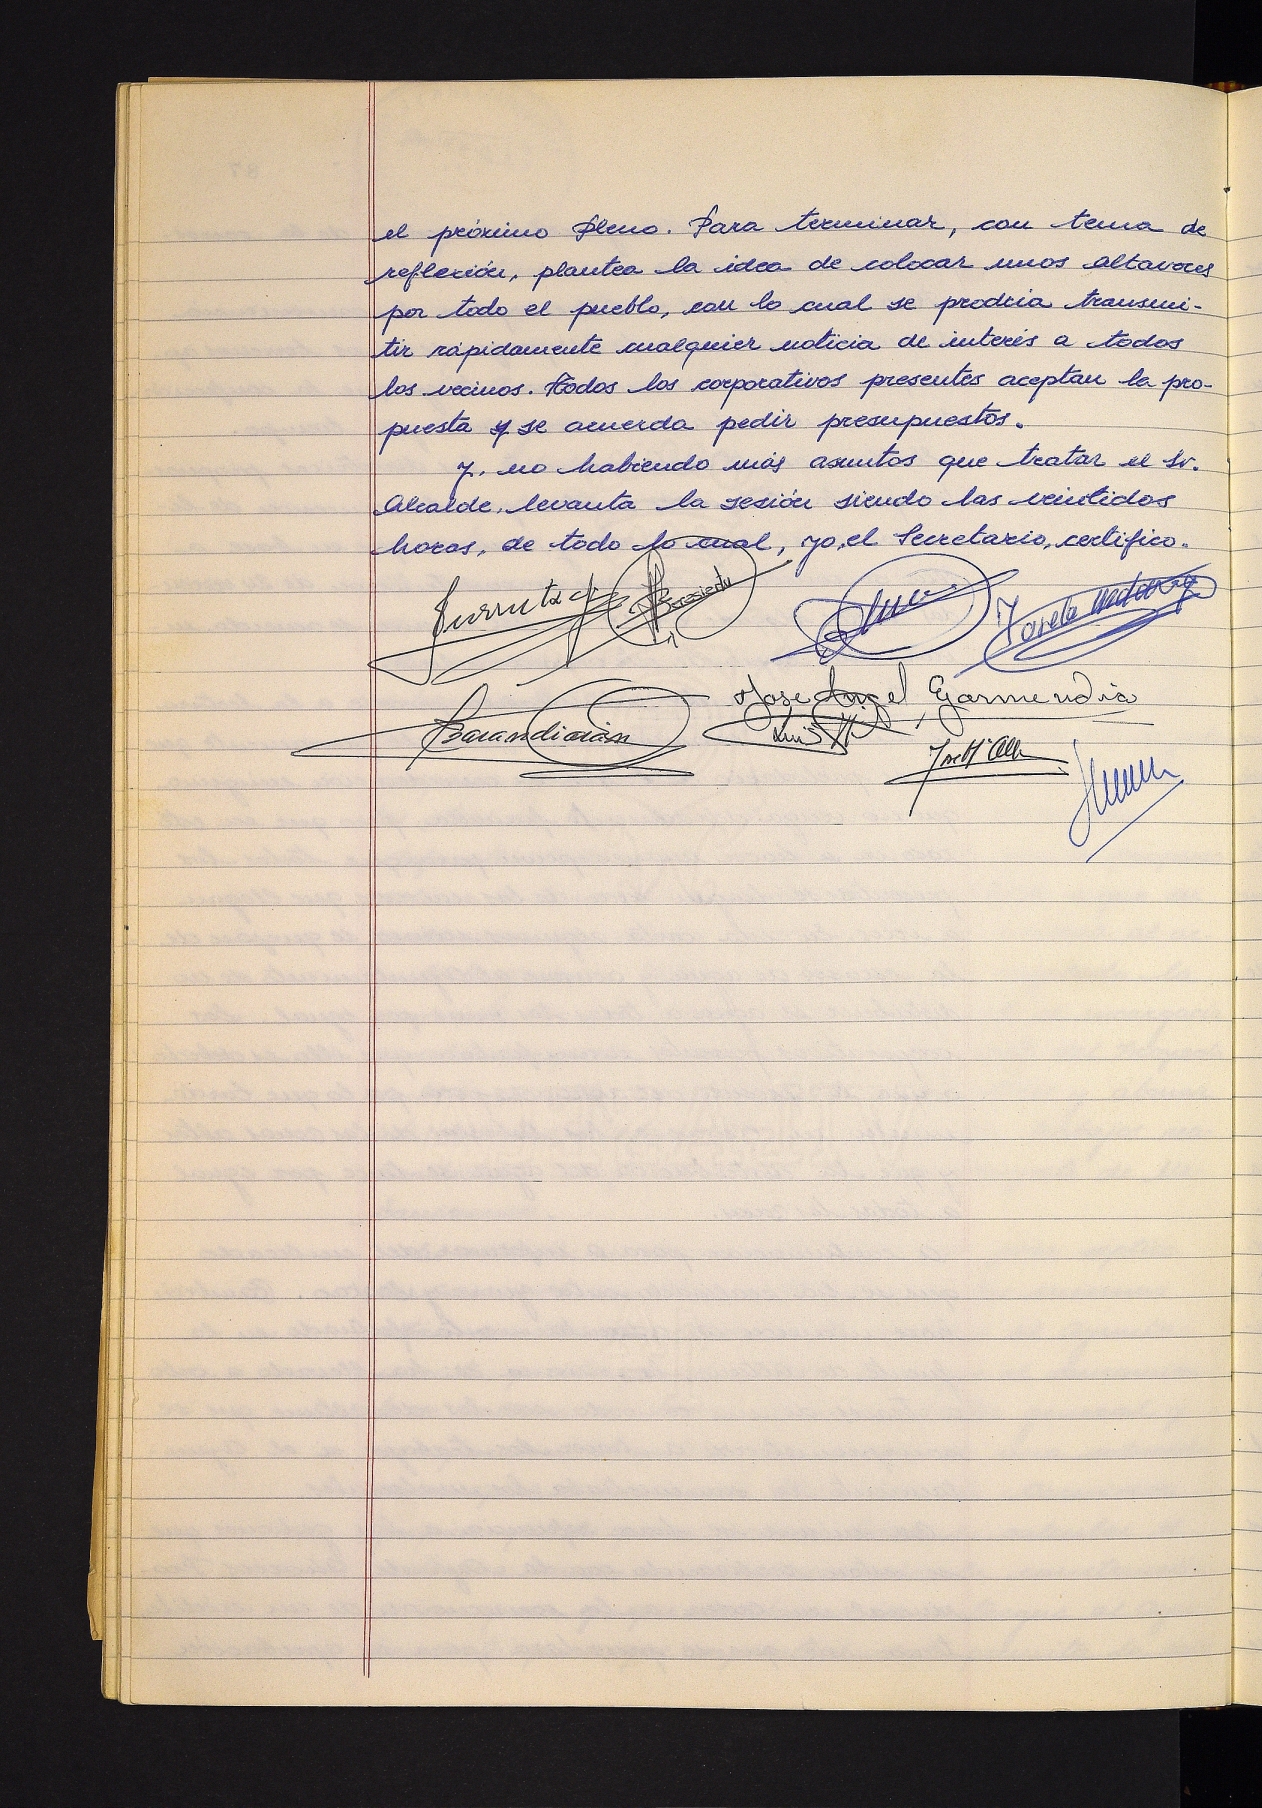 el próximo Pleno. Para terminar, con tema de
reflexión, plantea la idea de colocar unos altavoces
por todo el pueblo, con lo cual se prodria transmi-
tir rápidamente cualquier noticia de interés a todos
los vecinos. Todos los corporativos presentes aceptan la pro-
puesta y se acuerda pedir presupuestos.
Y, no habiendo más asuntos que tratar el Sr.
Alcalde, levanta la sesión siendo las veintidos
horas, de todo lo cual, yo, el Secretario, certifico.
Beresiartu
Barandiarán
Jose Angel Garmendia
Luis